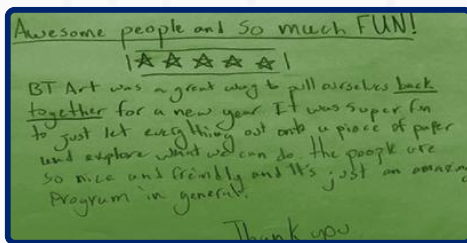 Awesome people and so much FUN!
|☆ ☆ ☆ ☆ ☆|
BT Art was a great way to pull ourselves back
together for a new year. It was super fun
to just let everything out onto a piece of paper
and explore what we can do. the people are
so nice and freindly and It's just an amazing
Program in general.
Thank you